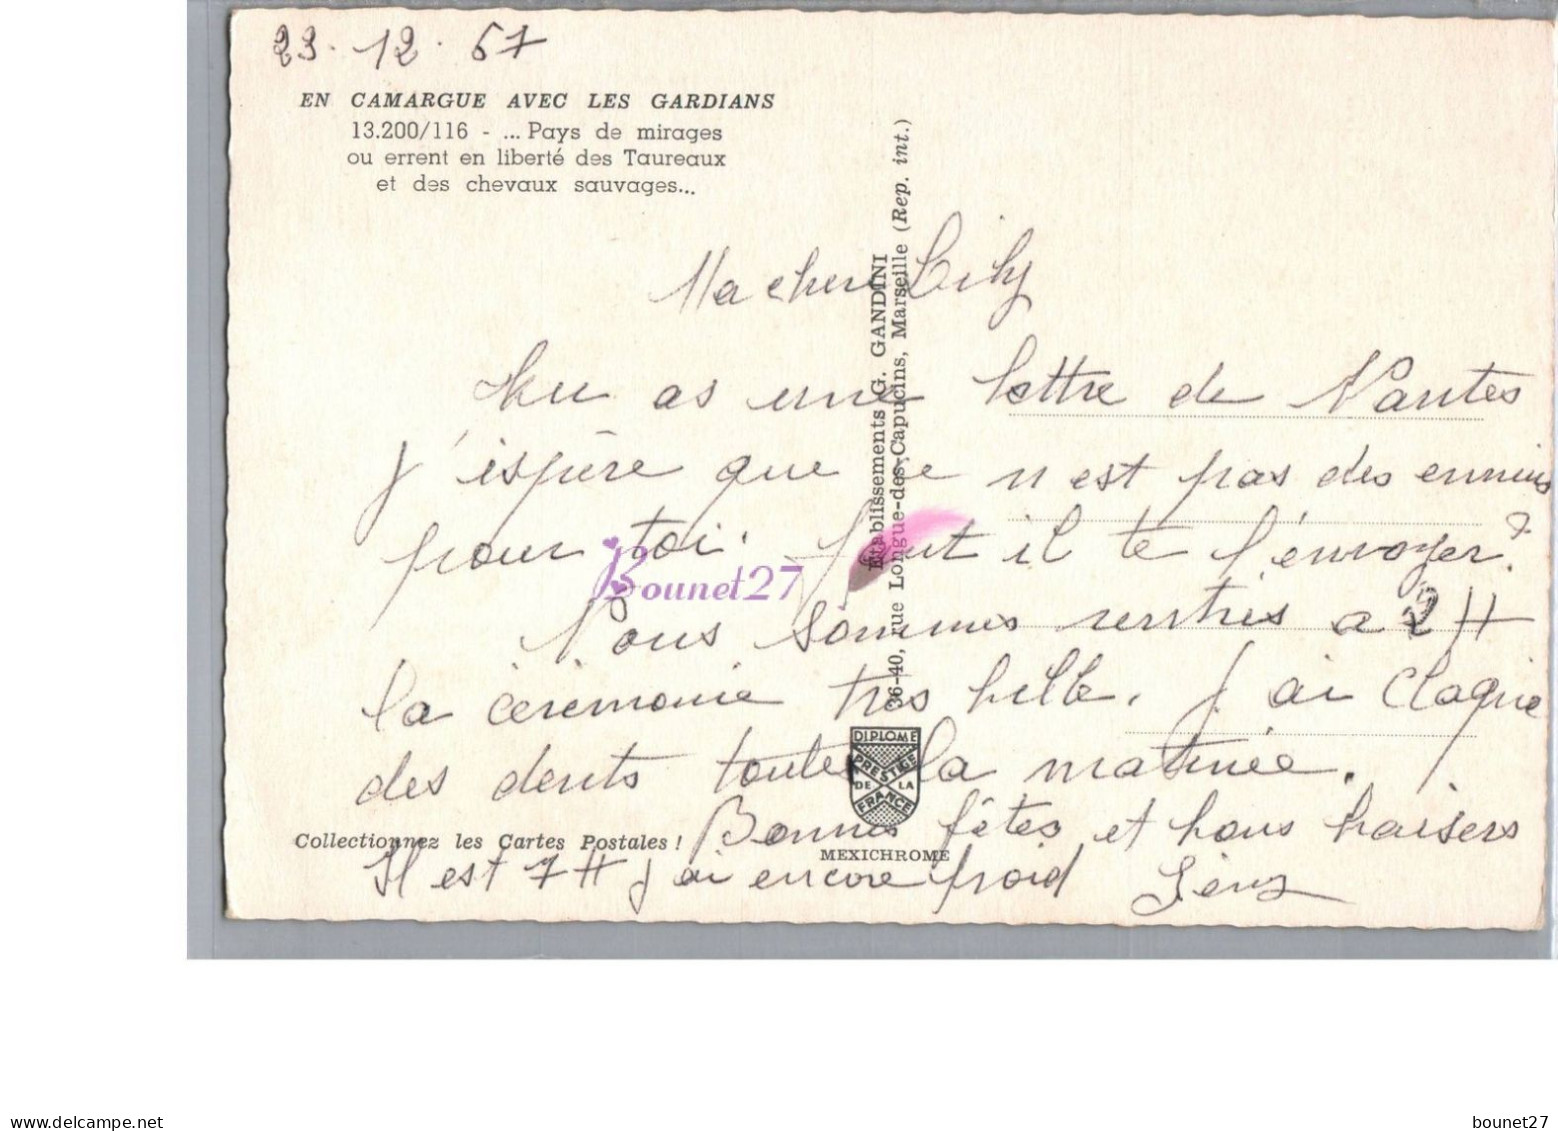 23.12.67
EN CAMARGUE AVEC LES GARDIANS
13.200/116 - ... Pays de mirages
ou errent en liberté des Taureaux
et des chevaux sauvages...
Ma chere Lily
tu as une lettre de Nantes
j'espère que ce n est pas des ennuis
pour toi. faut il te l'envoyer?
Nous sommes rentrés a 2 H
la cérémonie tres belle. J. ai claqué
des dents toute la matinée.
Bonnes fêtes et bons baisers
Il est 7 H j ai encore froid
Etablissements G. GANDINI
36-40, rue Longue-des-Capucins, Marseille (Rep. int.)
DIPLOME
PRESTIGE
DE LA
FRANCE
MEXICHROME
Collectionnez les Cartes Postales !
Bounet27
www.delcampe.net
bounet27